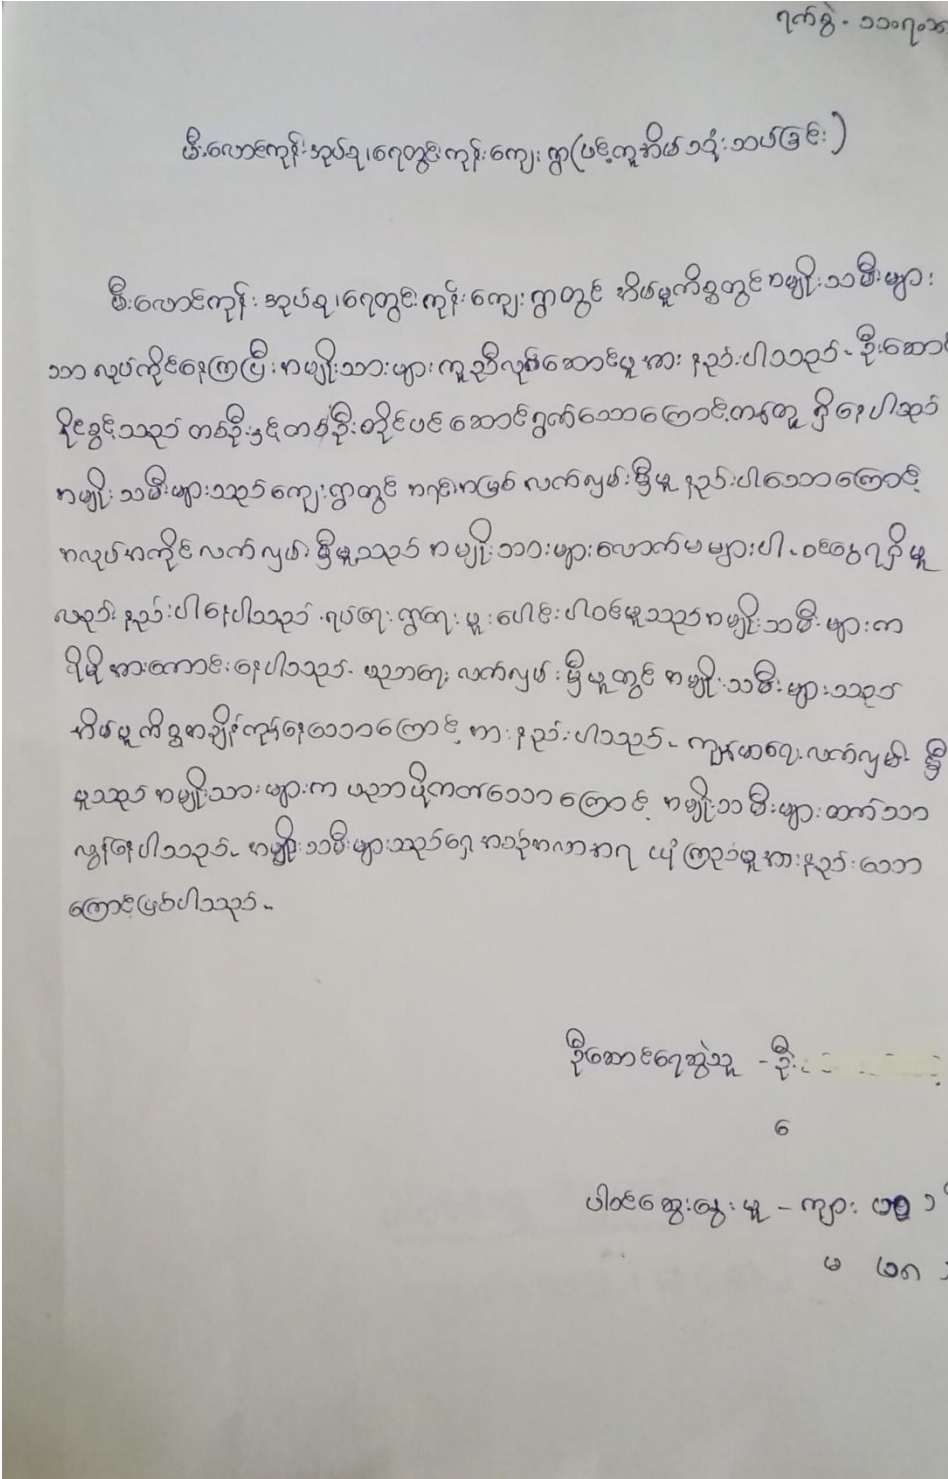 ရက်စွဲ - ၁၁၀၇၂၀
မီးလောင်ကုန်းအုပ်စု၊ရေတွင်းကုန်းကျေးရွာ(ဖြင့်ကူအိမ်သုံးသပ်ခြင်း)
မီးလောင်ကုန်းအုပ်စု၊ရေတွင်းကုန်းကျေးရွာတွင် အိမ်မှုကိစ္စတွင်အမျိုးသမီးများ
သာ လုပ်ကိုင်နေကြပြီး အမျိုးသားများ ကူညီလုပ်ဆောင်မှုအား နည်းပါသည်။ ဦးဆောင်
ပိုင်ခွင့်သည် တစ်ဦးနှင့်တစ်ဦး တိုင်ပင် ဆောင်ရွက်သောကြောင့် တန်းတူ ရှိနေပါသည်
အမျိုးသမီးများသည် ကျေးရွာတွင် အရင်းအမြစ် လက်လှမ်းမှီမှု နည်းပါသောကြောင့်
အလုပ်အကိုင် လက်လှမ်းမှီမှုသည် အမျိုးသားများလောက်မများပါ။ ဝင်ငွေရရှိမှု
လည်း နည်းပါနေပါသည်။ ရပ်ရေးရွာရေးမှု ပေါင်းပါဝင်မှုသည် အမျိုးသမီးများက
ပိုမိုအားကောင်းနေပါသည်။ ပညာရေး လက်လှမ်းမှီမှုတွင် အမျိုးသမီးများသည်
အိမ်မှုကိစ္စ အချိန်ကုန်နေသောကြောင့် အားနည်းပါသည်။ ကျန်းမာရေး လက်လှမ်းမှီ
မှုသည် အမျိုးသားများက ပညာပိုတတ်သောကြောင့် အမျိုးသမီးများထက်သာ
လွန်နေပါသည်။ အမျိုးသမီးများသည်ရှေးအစဉ်အလာအရ ယုံကြည်မှုအားနည်းသော
ကြောင့်ဖြစ်ပါသည်။
ဦးဆောင်ရေးဆွဲသူ - ဦး
ပါဝင်ဆွေးနွေးမှု - ကျား
မ ၂၈